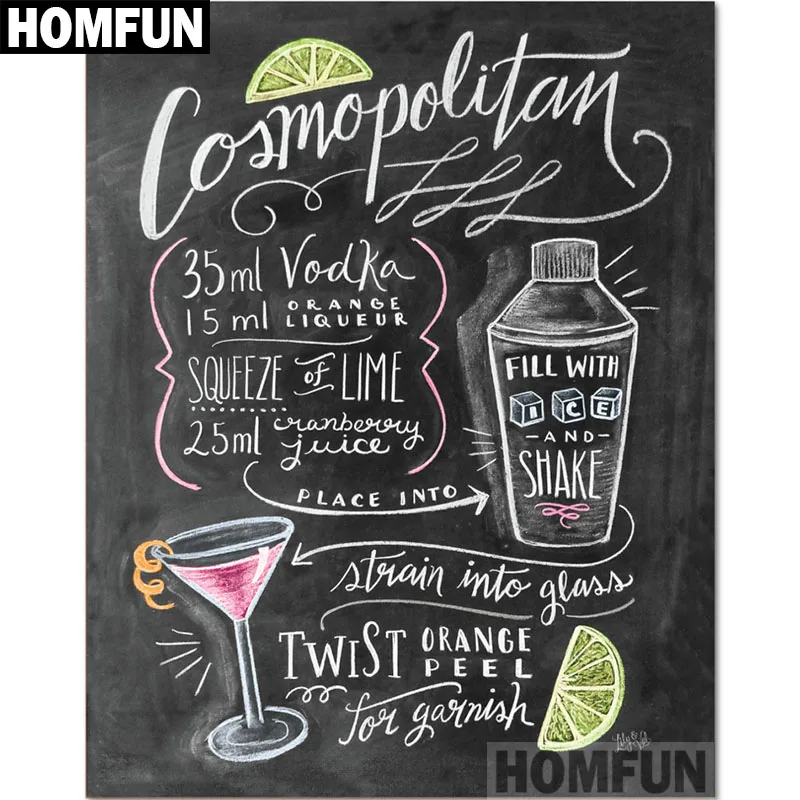 HOMFUN
Cosmopolitan
35ml Vodka
15 ml ORANGE LIQUEUR
SQUEEZE of LIME
25ml cranberry juice
PLACE INTO
FILL WITH
ICE
-AND-
SHAKE
strain into glass
TWIST ORANGE PEEL
for garnish
Lily & Val
HOMFUN